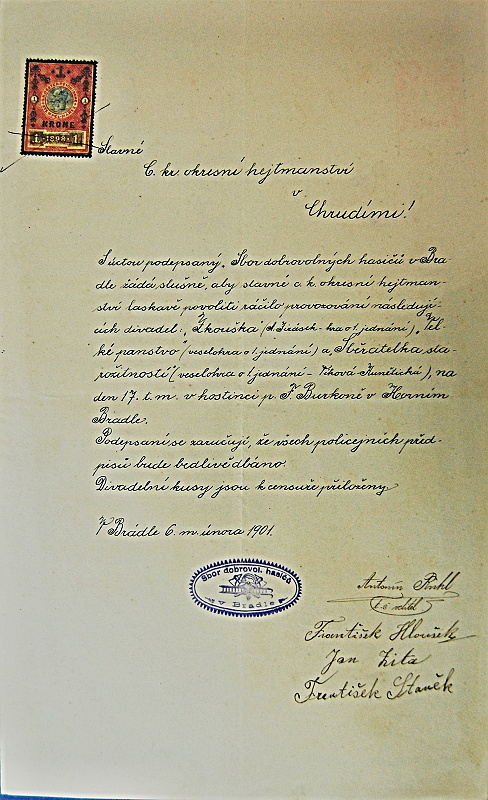 1
KRONE
1 1898 1
Slavné
C. kr. okresní hejtmanství
v
Chrudimi!
S úctou podepsaný „Sbor dobrovolných hasičů v Bra-
dle žádá slušně, aby slavné c. k. okresní hejtman-
ství laskavě povoliti ráčilo provozování následují-
cích divadel: „Zkouška (A. Jirásek - hra o 1. jednání), „Vel-
ké panstvo" (veselohra o 1. jednání) a „Sběratelka sta-
rožitností (veselohra o 1. jednání - Viková Kunětická), na
den 17. t. m. v hostinci p. F. Burkoně v Horním
Bradle.
Podepsaní se zaručují, že všech policejních před-
pisů bude bedlivě dbáno.
Divadelní kusy jsou k censuře přiloženy
V Brádle 6. m. února 1901.
Sbor dobrovol. hasičů
v Bradle
Antonín
František Hloušek
Jan Zita
František Staněk